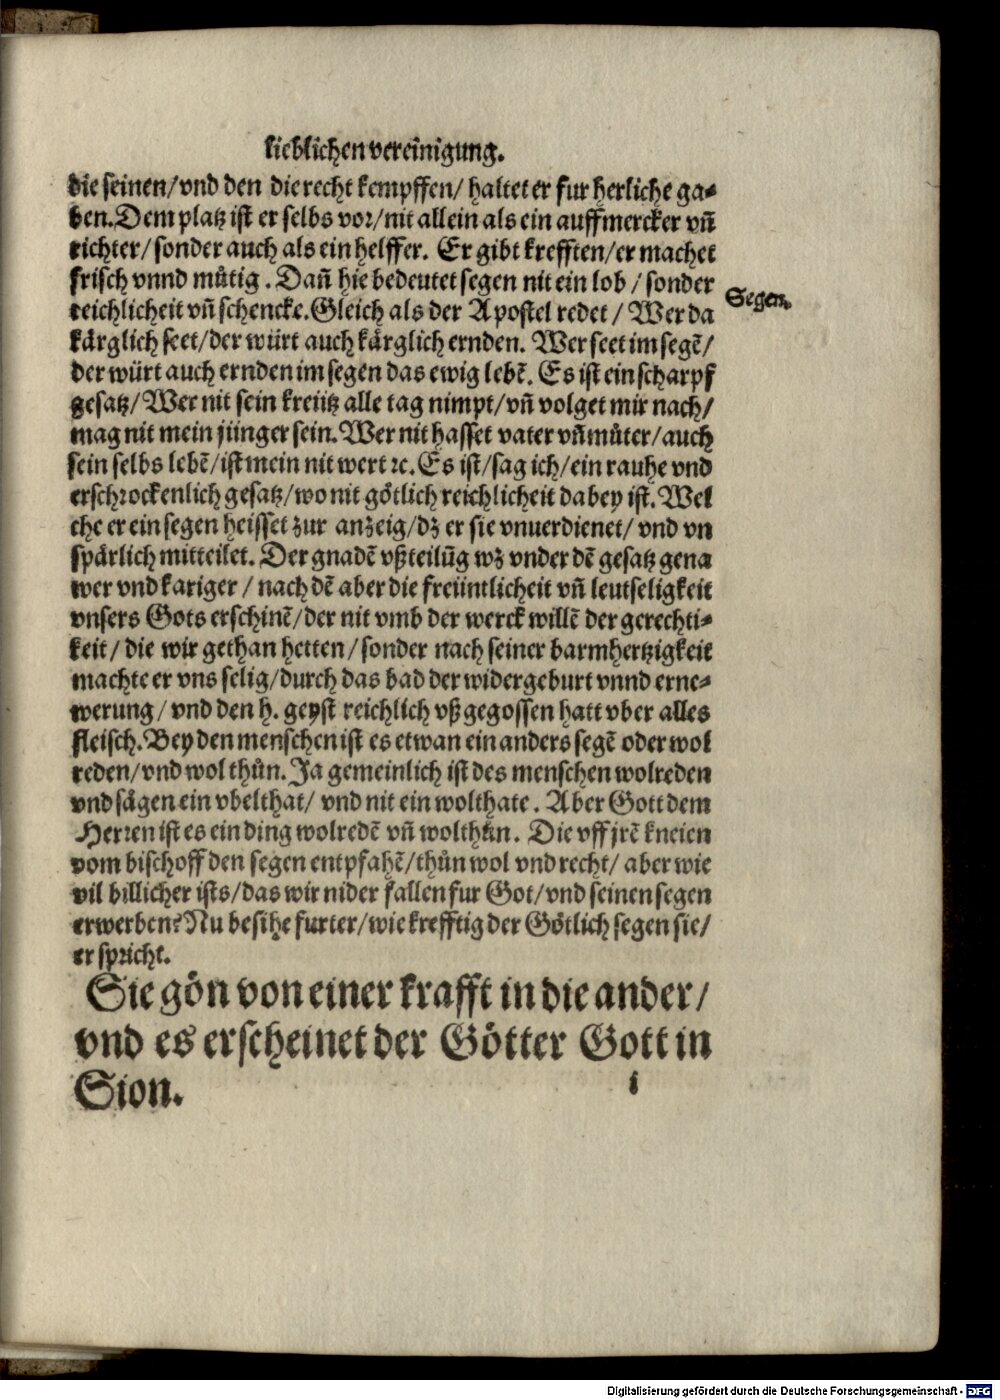 lieblichen vereinigung.
die seinen/vnd den die recht kempffen/ haltet er fur herliche ga-
ben. Dem platz ist er selbs vor/nit allein als ein auffmercker vñ
richter/sonder auch als ein helffer. Er gibt krefften/er machet
frisch vnnd můtig. Dañ hie bedeutet segen nit ein lob/sonder
reichlicheit vñ schencke. Gleich als der Apostel redet/ Wer da
Segen.
kärglich seet/der würt auch kärglich ernden. Wer seet im segẽ/
der würt auch ernden im segen das ewig lebẽ. Es ist ein scharpf
gesatz/Wer nit sein kreütz alle tag nimpt/vñ volget mir nach/
mag nit mein jünger sein. Wer nit hasset vater vñ můter/auch
sein selbs lebẽ/ist mein nit wert ⁊c. Es ist/sag ich/ein rauhe vnd
erschrockenlich gesatz/wo nit götlich reichlicheit dabey ist. Wel
che er ein segen heisset zur anzeig/dz er sie vnuerdienet/ vnd vn
spärlich mitteilet. Der gnadẽ vßteilũg wz vnder dẽ gesatz gena
wer vnd kariger/ nach dẽ aber die freüntlicheit vñ leutseligkeit
vnsers Gots erschinẽ/der nit vmb der werck willẽ der gerechti-
keit/ die wir gethan hetten/sonder nach seiner barmhertzigkeit
machte er vns selig/durch das bad der widergeburt vnnd erne-
werung/ vnd den h. geyst reichlich vß gegossen hatt vber alles
fleisch. Bey den menschen ist es etwan ein anders segẽ oder wol
reden/vnd wol thůn. Ja gemeinlich ist des menschen wolreden
vnd sägen ein vbelthat/ vnd nit ein wolthate. Aber Gott dem
Herren ist es ein ding wolredẽ vñ wolthůn. Die vff jrẽ kneien
vom bischoff den segen entpfahẽ/thůn wol vnd recht/ aber wie
vil billicher ists/das wir nider fallen fur Got/vnd seinen segen
erwerben? Nu besihe furter/wie krefftig der Götlich segen sie/
er spricht.
Sie gön von einer krafft in die ander/
vnd es erscheinet der Götter Gott in
Sion.
i
Digitalisierung gefördert durch die Deutsche Forschungsgemeinschaft - DFG